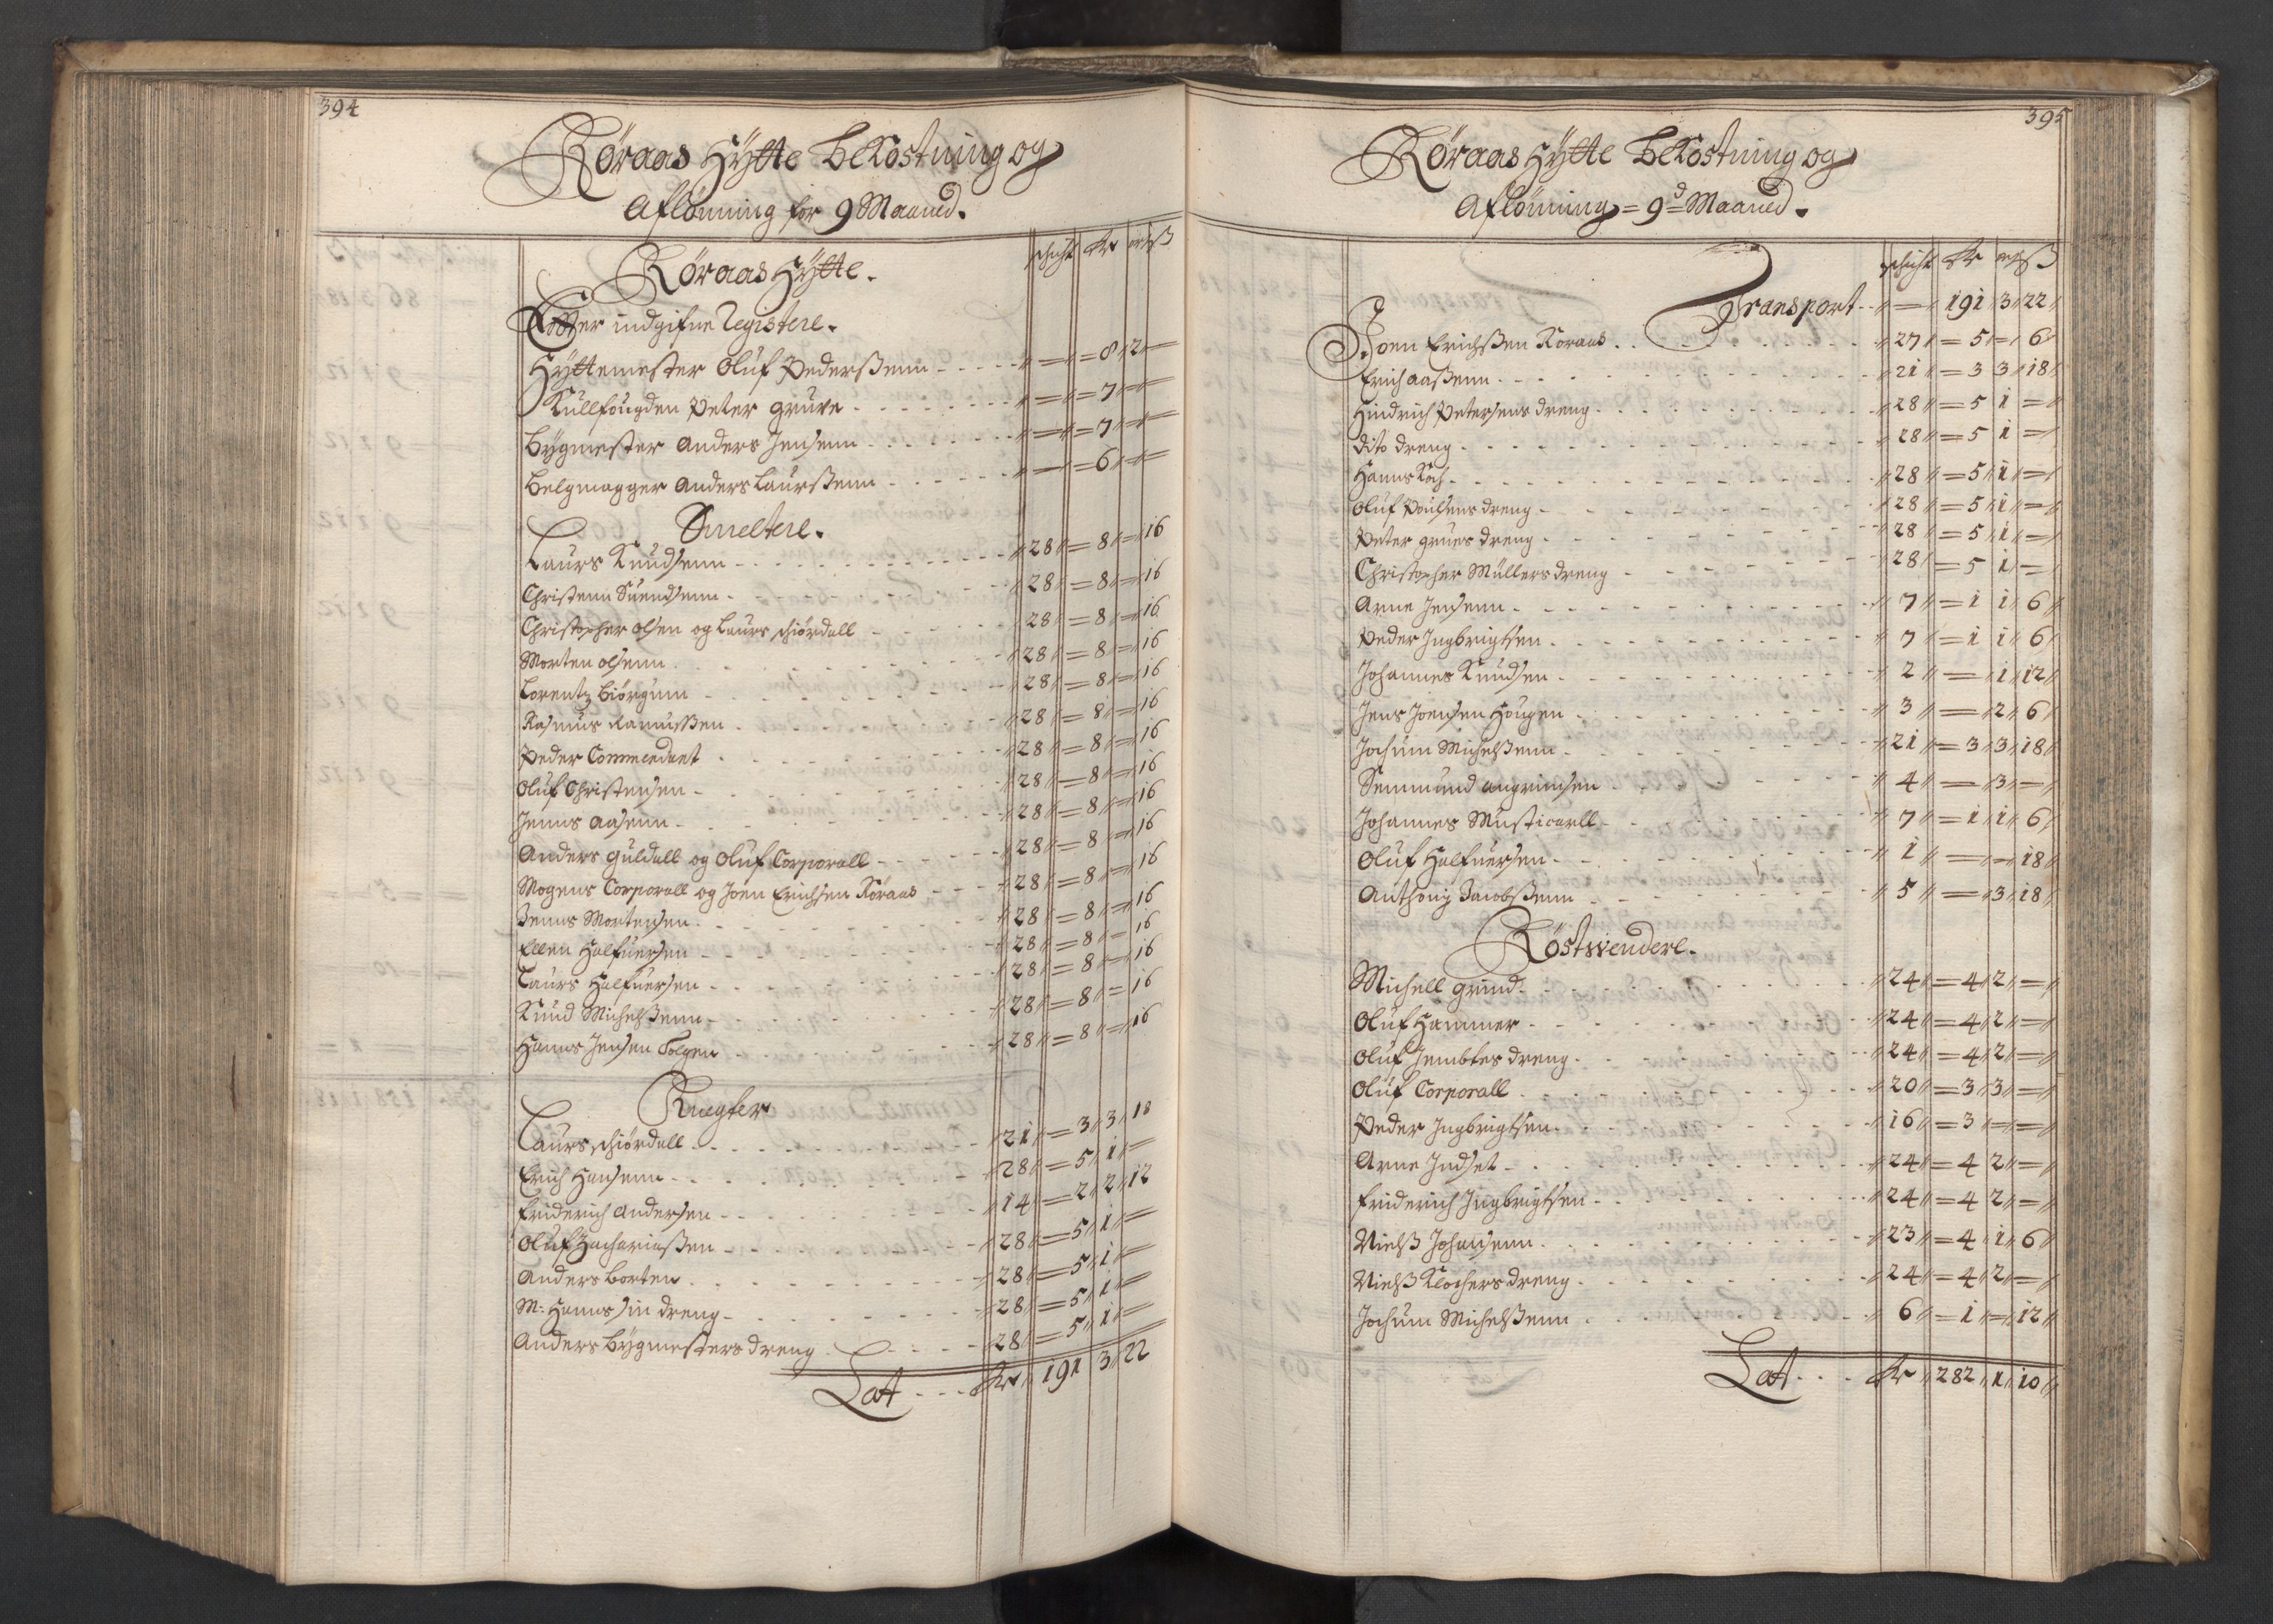 394
Röraas Hÿtte bekostning og
Aflönning for 9 Maaned.
schicht Rr ort ß
Röraas Hÿtte.
Efter indgifne Registere.
Hÿttemester Oluf Pederßenn - - - - - 〃 — 〃 = 8 〃 2 —
Kullfougden Peter gruve - - - - - 〃 — 〃 = 7 〃 =
Bÿgmester Anders Jensenn - - - - - 〃 — 〃 = 7 〃 =
Belgmagger Anders Laurßenn - - - - 〃 — 〃 = 6 〃 =
Smeltere.
Laurs Knudsenn - - - - - 〃 28 〃 = 8 〃 = 〃 16
Christenn Suendsenn - - - - - 〃 28 〃 = 8 〃 = 〃 16
Christopher olsen og Laurs schiördall - - - 28 〃 = 8 〃 = 〃 16
Morten olsenn - - - - - 〃 28 〃 = 8 〃 = 〃 16
Lorentz Biörgum - - - - - 〃 28 〃 = 8 〃 = 〃 16
Rasmus Ramußen - - - - - 〃 28 〃 = 8 〃 = 〃 16
Peder Commedant - - - - - 〃 28 〃 = 8 〃 = 〃 16
Oluf Christensen - - - - - 〃 28 〃 = 8 〃 = 〃 16
Jenns Aasenn - - - - - 〃 28 〃 = 8 〃 = 〃 16
Anders guldall og Oluf Corporall - - - - 〃 28 〃 = 8 〃 = 〃 16
Mogens Corporall og Joen Erichsen Röraas - - - 〃 28 〃 = 8 〃 = 〃 16
Jenns Mortensen - - - - - 〃 28 〃 = 8 〃 = 〃 16
Ellen Halfuersen - - - - - 〃 28 〃 = 8 〃 = 16
Laurs Halfuersen - - - - - 〃 28 〃 = 8 〃 = 〃 16
Knud Michelßenn - - - - - 〃 28 〃 = 8 〃 = 16
Hanns Jensen Solgen - - - - - 〃 28 〃 = 8 〃 = 〃 16
Knegter
Laurs schiördall - - - - - 〃 21 〃 = 3 〃 3 〃 18
Erich Hansenn - - - - - 〃 28 〃 = 5 〃 1 〃 =
Friderich Andersen - - - - - 〃 14 〃 = 2 〃 2 〃 12
Oluf Zachariaßen - - - - - 〃 28 〃 = 5 〃 1 〃 =
Anders Borten - - - - - 〃 28 〃 = 5 〃 1 〃 =
M: Hanns sin dreng - - - - - 〃 28 〃 = 5 〃 1 〃 =
Anders Bÿgmesters dreng - - - - - 〃 28 〃 = 5 〃 1 〃 =
Lat - - - Rr 〃 191 〃 3 〃 22
395
Röraas Hÿtte bekostning og
Aflönning = 9d Maaned.
schicht Rr ort ß
Transport - - 〃 — 〃 191 〃 3 〃 22 〃
Joen Erichßen Röraas - - - - - 〃 27 〃 = 5 〃 = 〃 6 〃
Erich aaßenn - - - - - 〃 21 〃 = 3 3 〃 18 〃
Hindrich Petersens dreng - - - - - 〃 28 〃 = 5 1 = 〃
Dito dreng - - - - - 〃 28 〃 = 5 1 = 〃
Hanns Koch - - - - - 〃 28 〃 = 5 〃 1 〃 = 〃
Oluf Poulsens dreng - - - - - 〃 28 〃 = 5 〃 1 〃 = 〃
Peter grues dreng - - - - - 〃 28 〃 = 5 〃 1 〃 = 〃
Christopher Müllers dreng - - - - - 〃 28 〃 = 5 1 〃 = 〃
Arne Jensenn - - - - - 〃 7 〃 = 1 1 〃 6 〃
Peder Ingbrigtsen - - - - - 〃 7 〃 = 1 1 〃 6 〃
Johannes Knudsen - - - - - 〃 2 〃 = 〃 1 〃 12 〃
Jens Joensen Hougen - - - - - 〃 3 〃 = 〃 2 〃 6 〃
Jochum Michelßenn - - - - - 〃 21 〃 = 3 〃 3 〃 18 〃
Semmund angrimsen - - - - - 〃 4 〃 = 〃 3 〃 = 〃
Johannes Musticarll - - - - - 〃 7 〃 = 1 〃 1 〃 6 〃
Oluf Halfuersen - - - - - 〃 1 〃 = 〃 = 〃 18 〃
Anthonÿ Jacobßenn - - - - - 〃 5 〃 = 〃 3 〃 18 〃
Röstwendere.
Michell grind - - - - - 〃 24 〃 = 4 〃 2 〃 = 〃
Oluf Hammer - - - - - 〃 24 〃 = 4 〃 2 〃 = 〃
Oluf Jembtes dreng - - - - - 〃 24 〃 = 4 〃 2 〃 = 〃
Oluf Corporall - - - - - 〃 20 〃 = 3 〃 3 〃 = 〃
Peder Ingbrigtsen - - - - - 〃 16 〃 = 3 〃 = 〃 = 〃
Arne Indset - - - - - 〃 24 〃 = 4 2 〃 = 〃
Friderich Ingbrigtsen - - - - - 〃 24 〃 = 4 2 〃 = 〃
Nielß Johansenn - - - - - 〃 23 〃 = 4 〃 1 〃 6 〃
Nielß Klochers dreng - - - - - 〃 24 〃 = 4 〃 2 〃 = 〃
Jochum Michelßenn - - - - - 〃 6 〃 = 1 〃 = 〃 12 〃
Lat - - - Rr 〃 282 〃 1 〃 10 〃